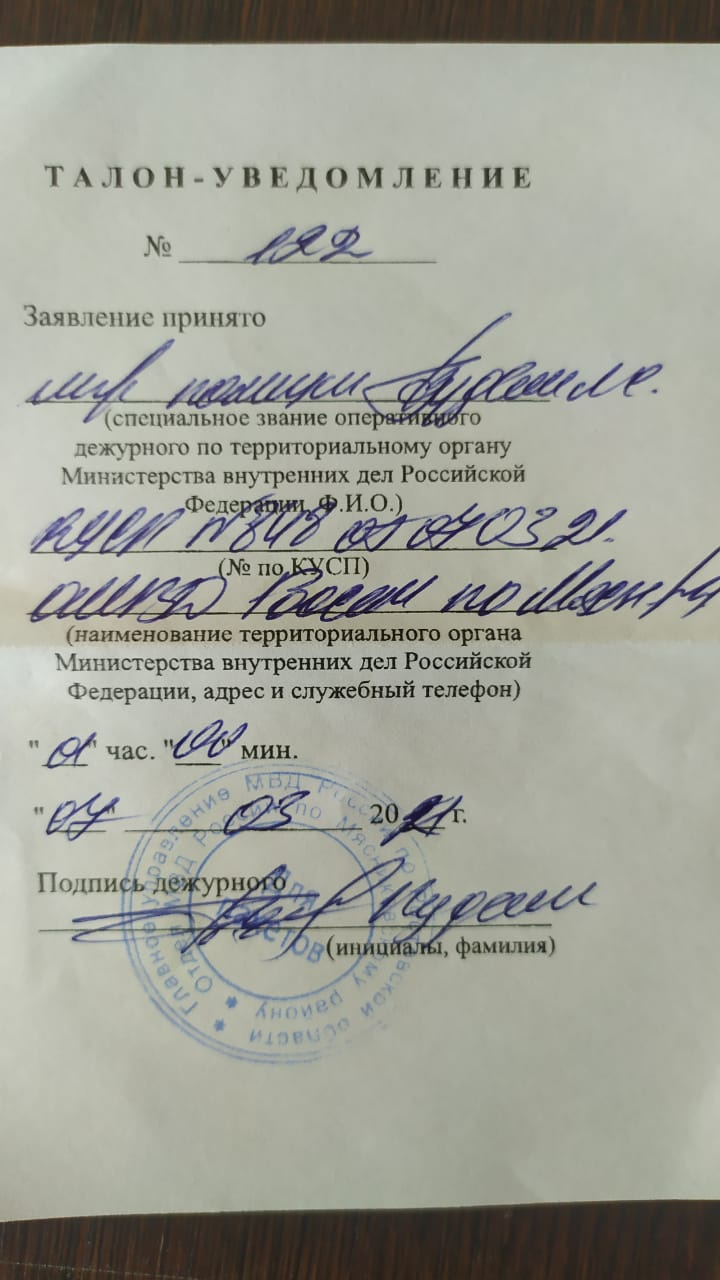 ТАЛОН-УВЕДОМЛЕНИЕ
№ 122
Заявление принято
полиции
(специальное звание оперативного
дежурного по территориальному органу
Министерства внутренних дел Российской
Федерации, Ф.И.О.)
КУСП № 848 от 07 03 21.
(№ по КУСП)
ОМВД России по Мясн. р-н
(наименование территориального органа
Министерства внутренних дел Российской
Федерации, адрес и служебный телефон)
" 01 " час. " 00 " мин.
" 07 " 03 20 21 г.
Подпись дежурного
(инициалы, фамилия)
Главное управление МВД России по Ростовской области
Отдел МВД России по Мясниковскому району